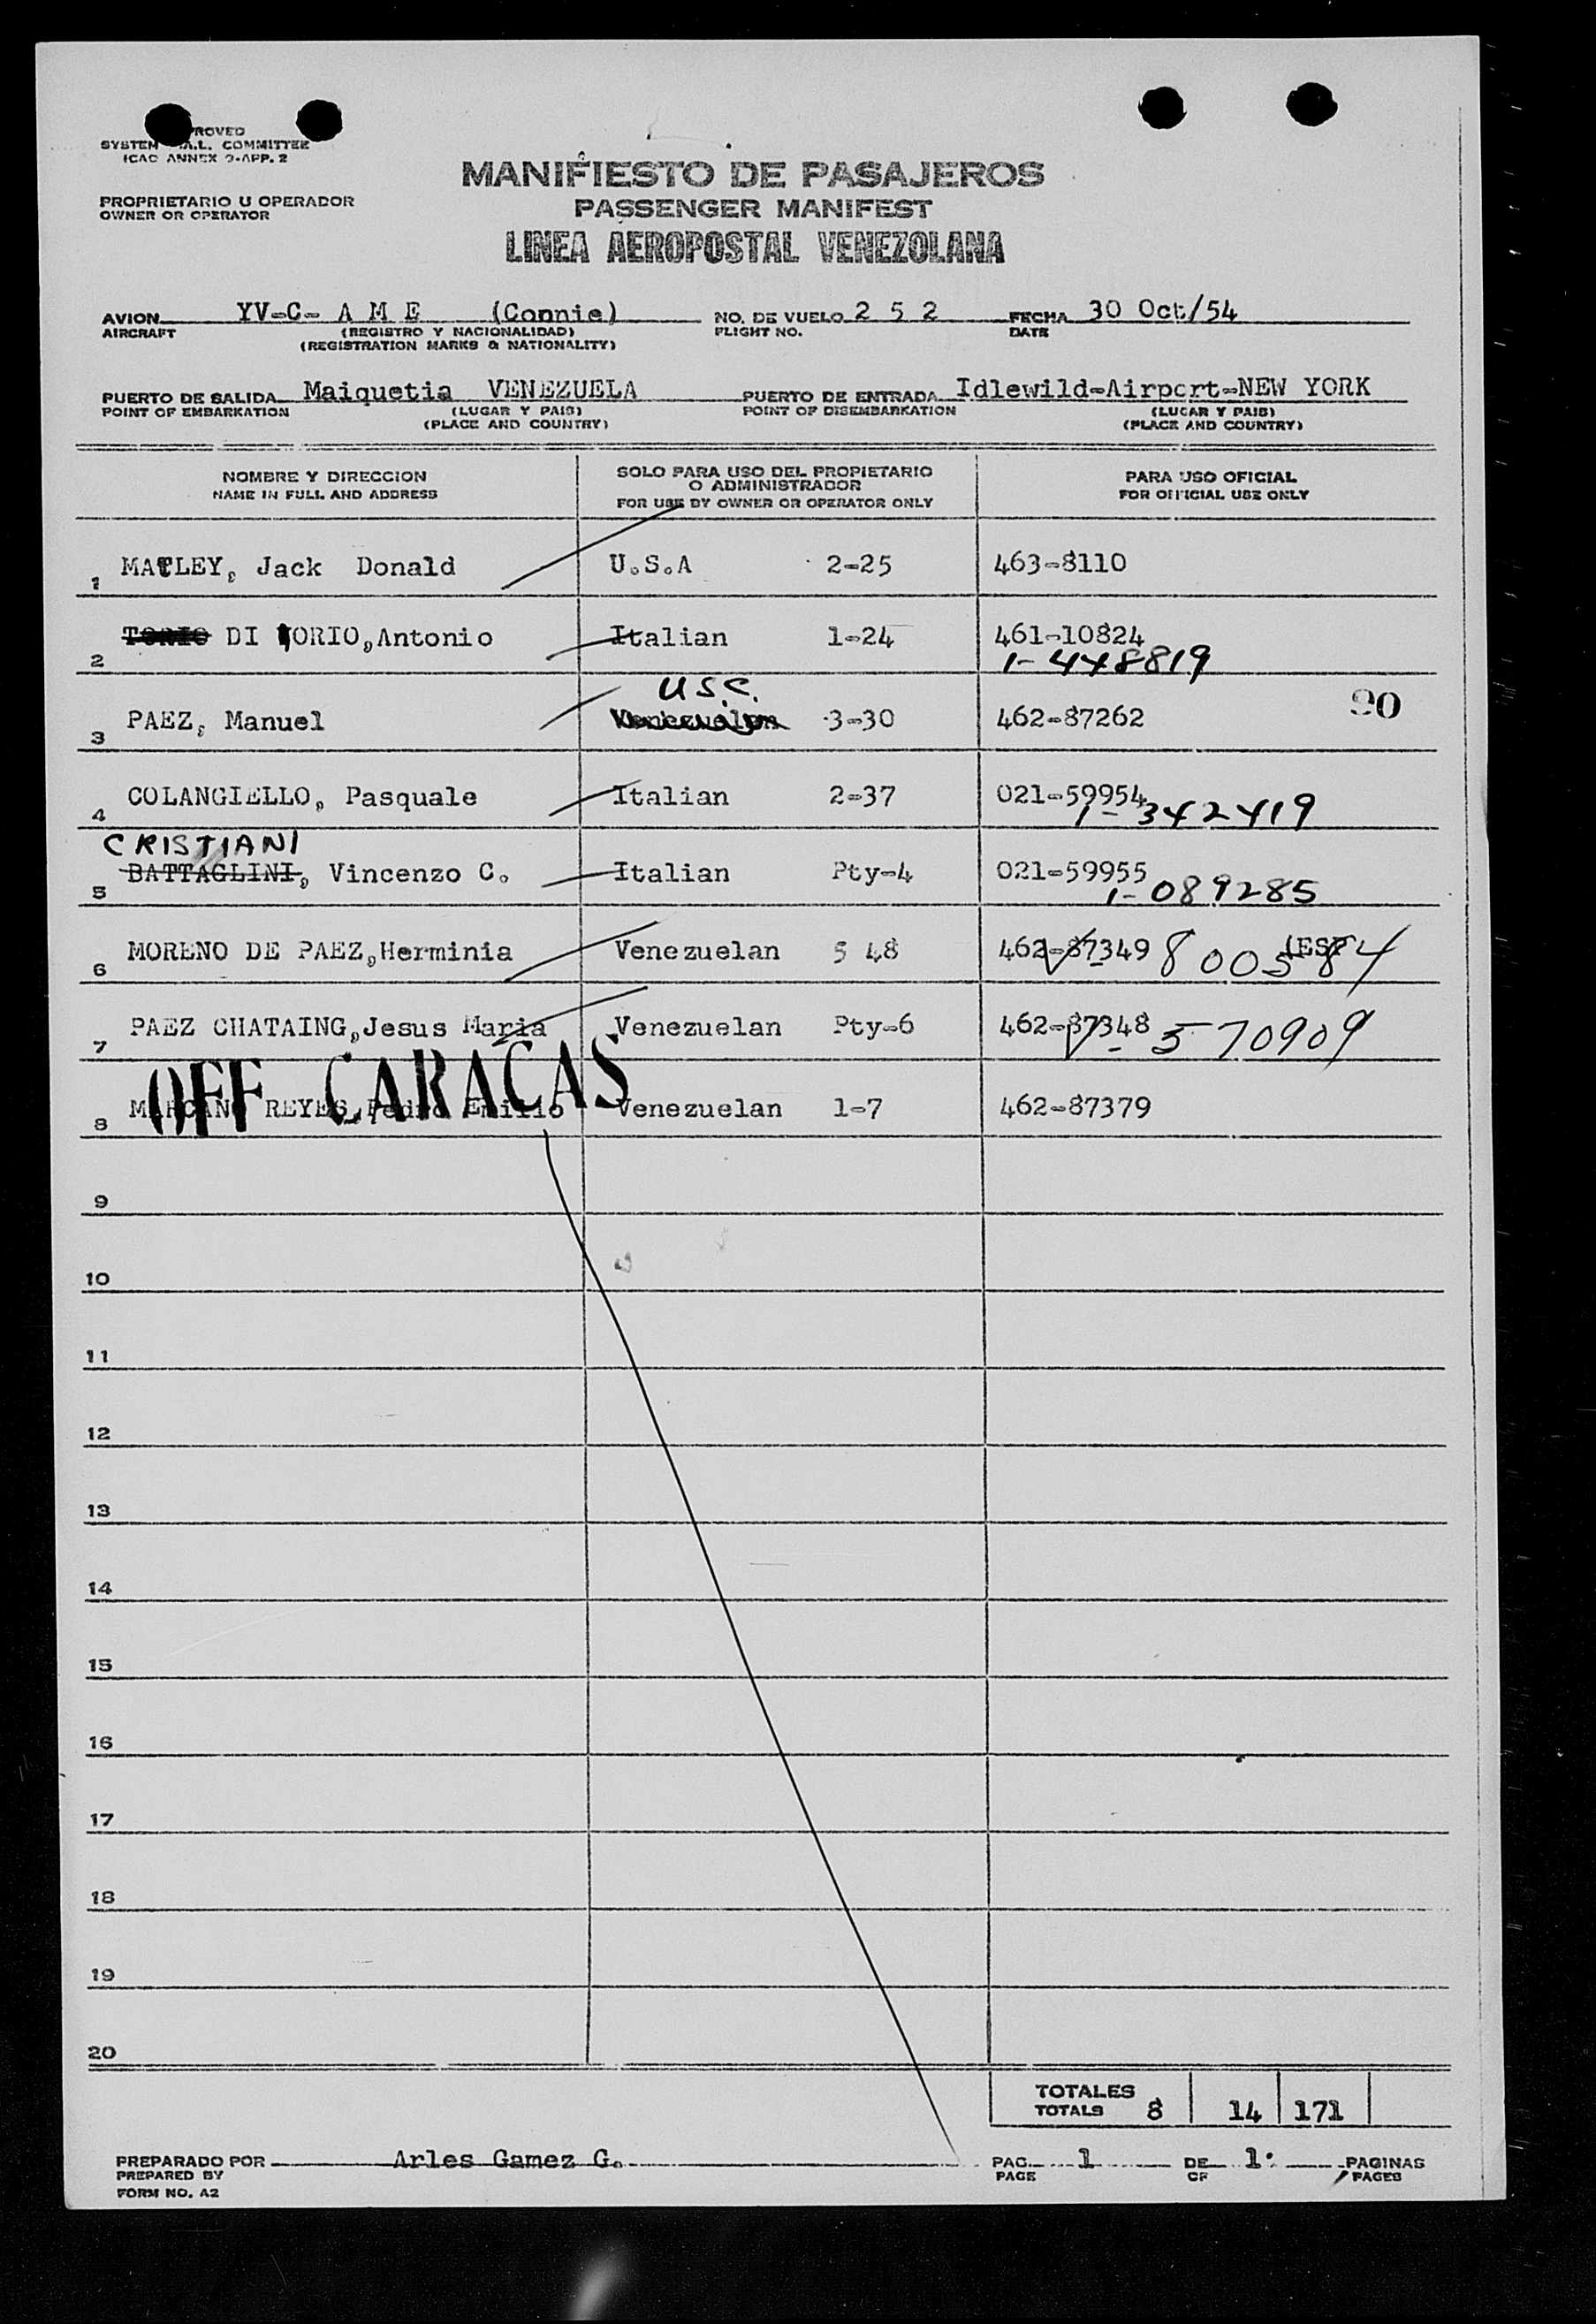 SYSTEM COMMITTEE
ICAO ANNEX 9-APP. 2
PROPRIETARIO U OPERADOR
OWNER OR OPERATOR
MANIFIESTO DE PASAJEROS
PASSENGER MANIFEST
LINEA AEROPOSTAL VENEZOLANA
AVION YV-C- A M E (Connie) NO. DE VUELO 2 5 2 FECHA 30 Oct/54
AIRCRAFT (REGISTRO Y NACIONALIDAD) FLIGHT NO. DATE
(REGISTRATION MARKS & NATIONALITY)
PUERTO DE SALIDA Maiquetia VENEZUELA PUERTO DE ENTRADA Idlewild-Airport-NEW YORK
POINT OF EMBARKATION (LUGAR Y PAIS) POINT OF DISEMBARKATION (LUGAR Y PAIS)
(PLACE AND COUNTRY) (PLACE AND COUNTRY)
NOMBRE Y DIRECCION SOLO PARA USO DEL PROPIETARIO PARA USO OFICIAL
NAME IN FULL AND ADDRESS O ADMINISTRADOR FOR OFFICIAL USE ONLY
FOR USE BY OWNER OR OPERATOR ONLY
1 MATLEY, Jack Donald U.S.A 2-25 463-8110
2 TORIO DI IORIO,Antonio Italian 1-24 461-10824
1-448819
U S C.
3 PAEZ, Manuel Venezuelan 3-30 462-87262 90
4 COLANGIELLO, Pasquale Italian 2-37 021-59954
1-342419
CRISTIANI
5 BATTAGLINI, Vincenzo C. Italian Pty-4 021-59955
1-089285
6 MORENO DE PAEZ,Herminia Venezuelan 5 48 462-87349 (ESP
V-800584
7 PAEZ CHATAING,Jesus Maria Venezuelan Pty-6 462-87348
V-570909
OFF CARACAS
8 MARCANO REYES,Pedro Emilio Venezuelan 1-7 462-87379
9
10
11
12
13
14
15
16
17
18
19
20
TOTALES
TOTALS 8 14 171
PREPARADO POR Arles Gamez G. PAG. 1 DE 1 PAGINAS
PREPARED BY PAGE OF PAGES
FORM NO. A2